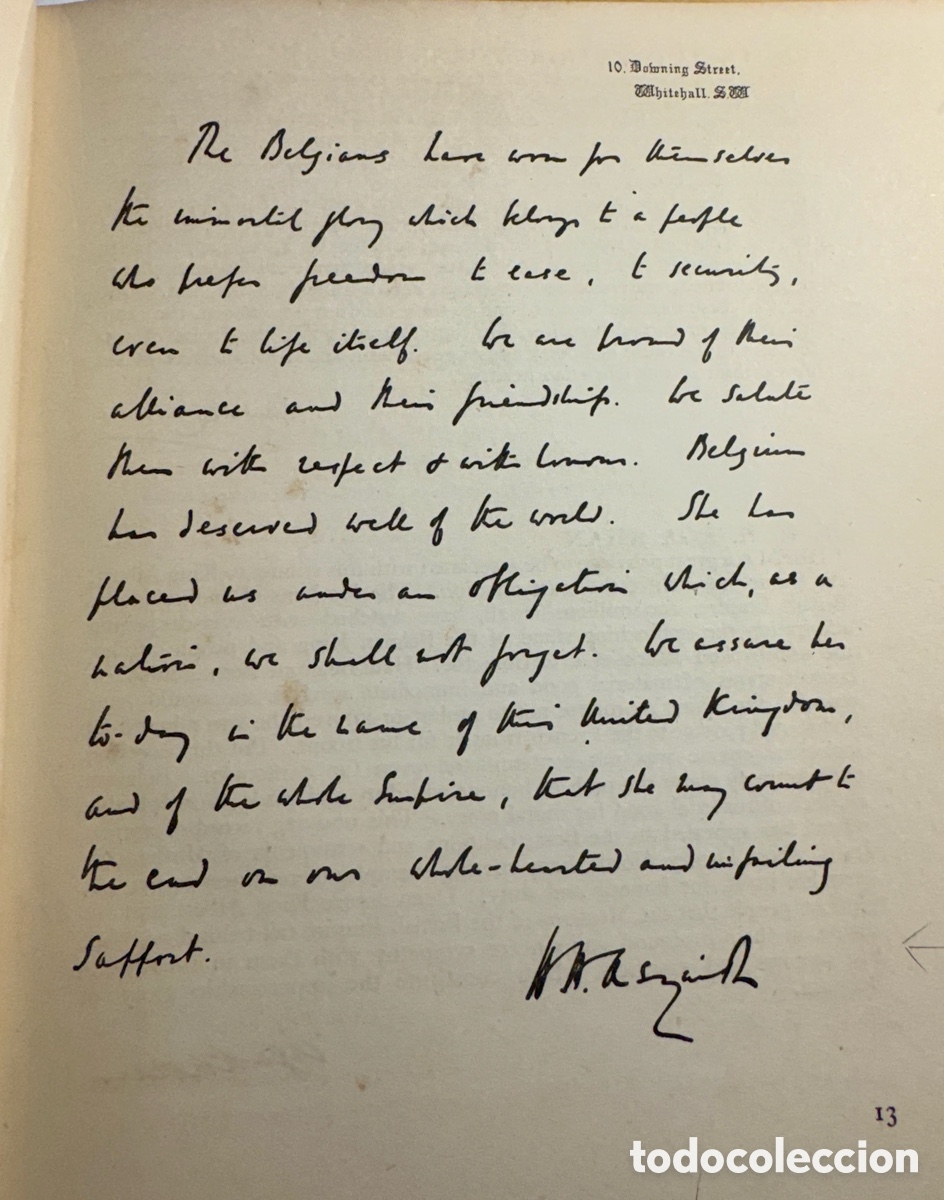 10, Downing Street,
Whitehall. S.W.
The Belgians have won for themselves
the immortal glory which belongs to a people
who prefer freedom to ease, to security,
even to life itself. We are proud of their
alliance and their friendship. We salute
them with respect & with honour. Belgium
has deserved well of the world. She has
placed us under an obligation which, as a
nation, we shall not forget. We assure her
to-day in the name of this United Kingdom,
and of the whole Empire, that she may count to
the end on our whole-hearted and unfailing
support.
HH. Asquith
13
todocoleccion